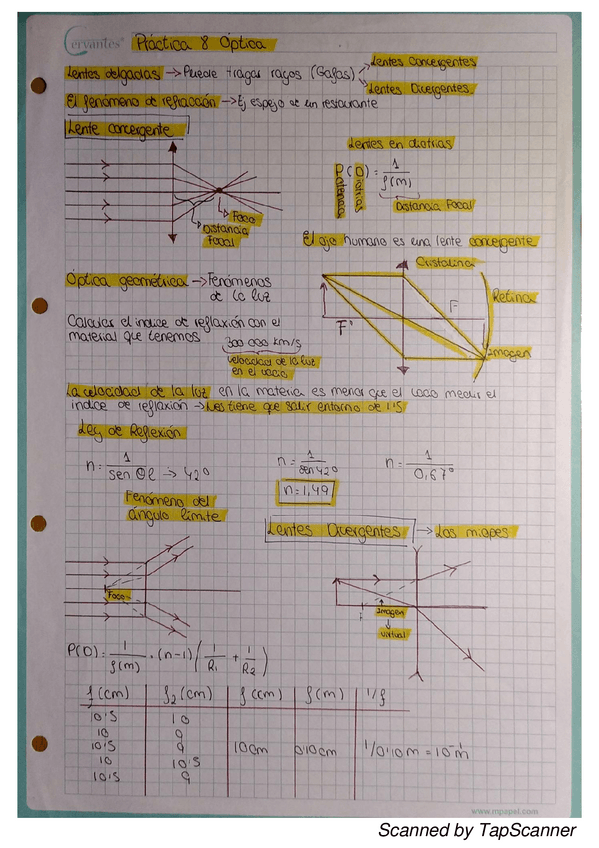 Cervantes
Práctica 8 Óptica
Lentes delgadas → Puede tragar rayos (Gafas)
Lentes Convergentes
Lentes Divergentes
El fenómeno de refracción → Ej espejo de un restaurante
Lente convergente
Foco
Distancia
Focal
Lentes en dioptrias
P(D) = 1
f(m)
Potencia
Dioptrias
Distancia Focal
El ojo humano es una lente convergente
Óptica geométrica → Fenómenos
de la luz
Cristalina
Retina
F
F'
Imagen
Calcular el indice de reflaxión con el
material que tenemos
300 000 km/s
velocidad de la luz
en el vacio
La velocidad de la luz en la materia es menor que el vacio medir el
indice de reflaxión → Les tiene que salir entorno de 1'5
Ley de Reflexión
n = 1
sen θL → 42º
n = 1
sen 42º
n = 1
0,67º
n = 1,49
Fenómeno del
ángulo límite
Lentes Divergentes → Los miopes
Foco
F
Imagen
virtual
P(D) = 1 · (n-1) ( 1 + 1 )
f(m) R1 R2
f (cm) f2 (cm) f (cm) f(m) 1/f
10'5 10
10 9
10'5 9 10cm 0'10cm 1/0'10m = 10 m⁻¹
10 10'5
10'5 9
www.mpapel.com
Scanned by TapScanner